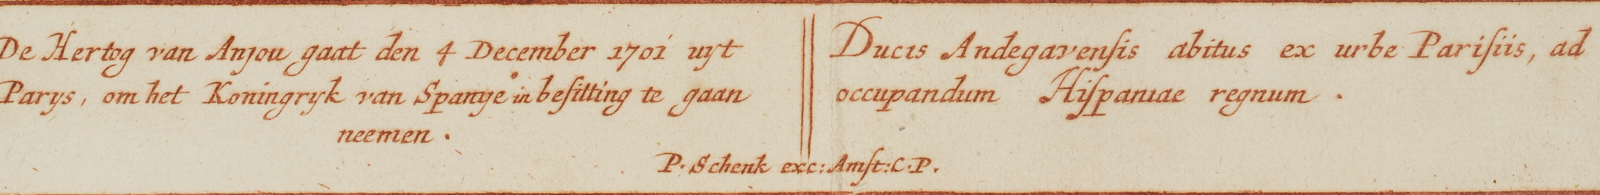 De Hertog van Anjou gaat den 4 December 1701 uyt
Parys, om het Koningryk van Spanye in besitting te gaan
neemen.
Ducis Andegavensis abitus ex urbe Parisiis, ad
occupandum Hispaniae regnum.
P. Schenk exc: Amst: C. P.